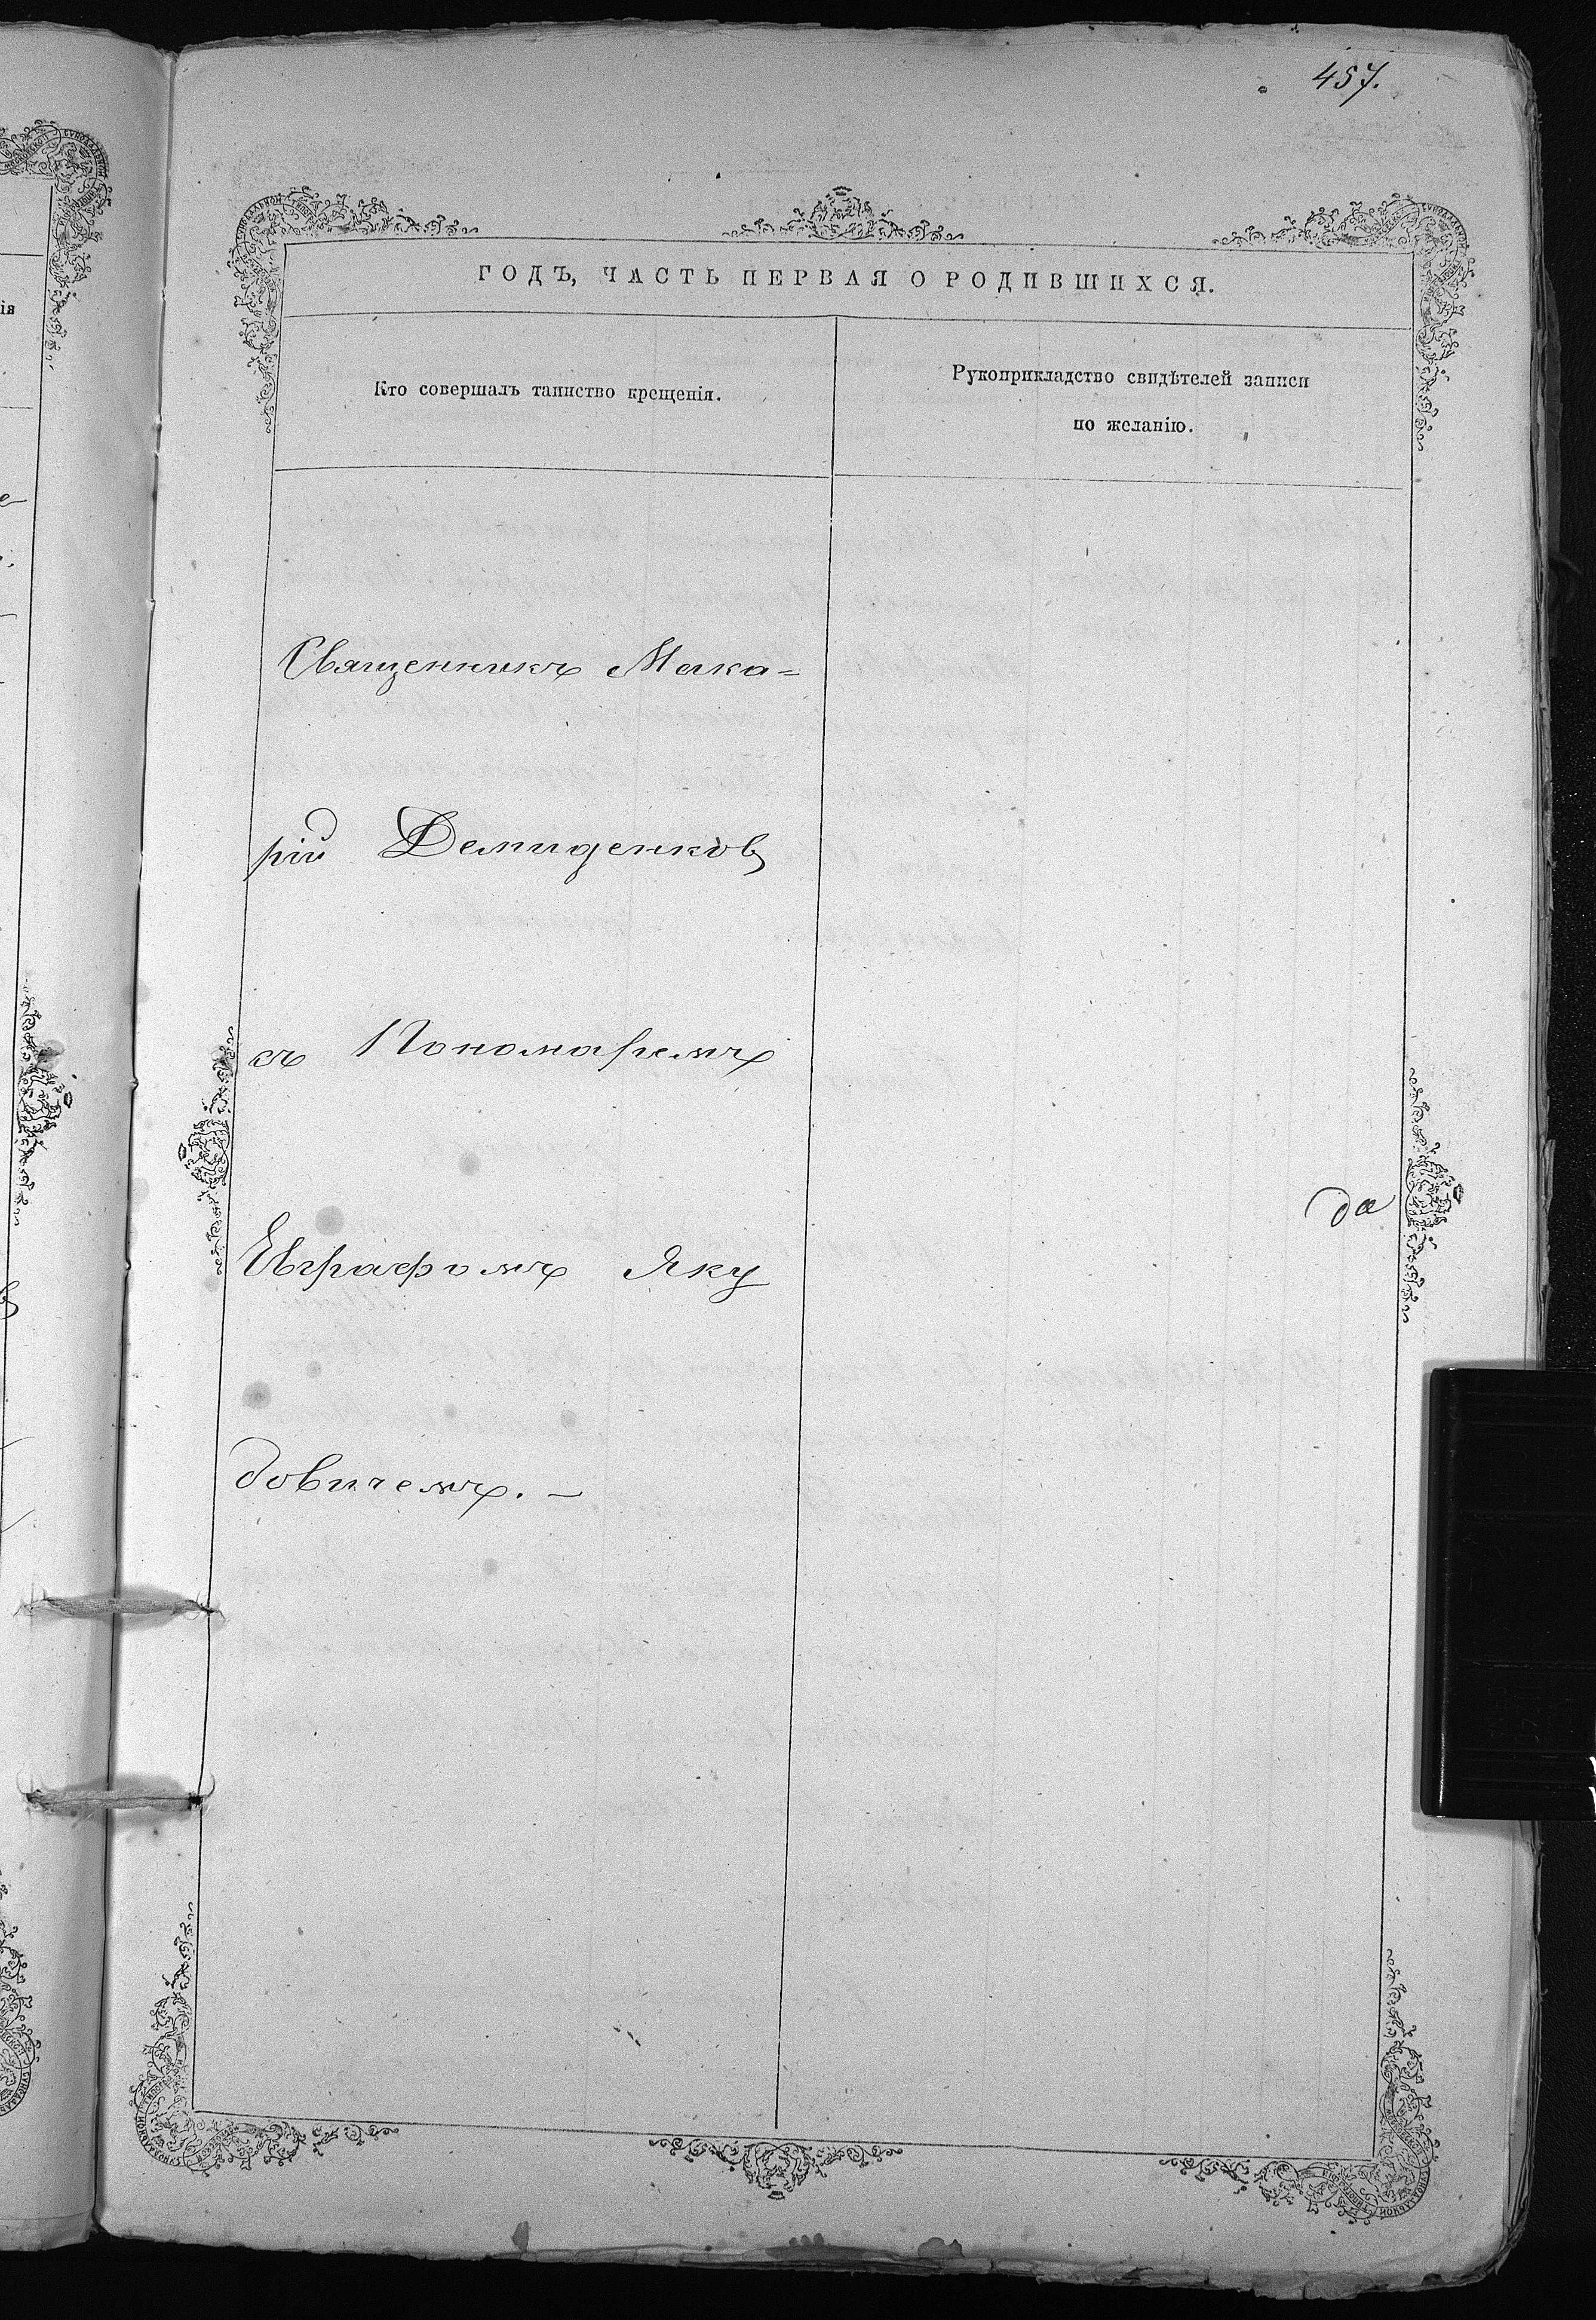 457.
ГОДЪ, ЧАСТЬ ПЕРВАЯ О РОДИВШИХСЯ.
Кто совершалъ таинство крещенія.
Рукоприкладство свидѣтелей записи
по желанію.
Священникъ Мака=
рій Демиденков
съ Пономаремъ
Евграфомъ Яку
довичемъ. –
да